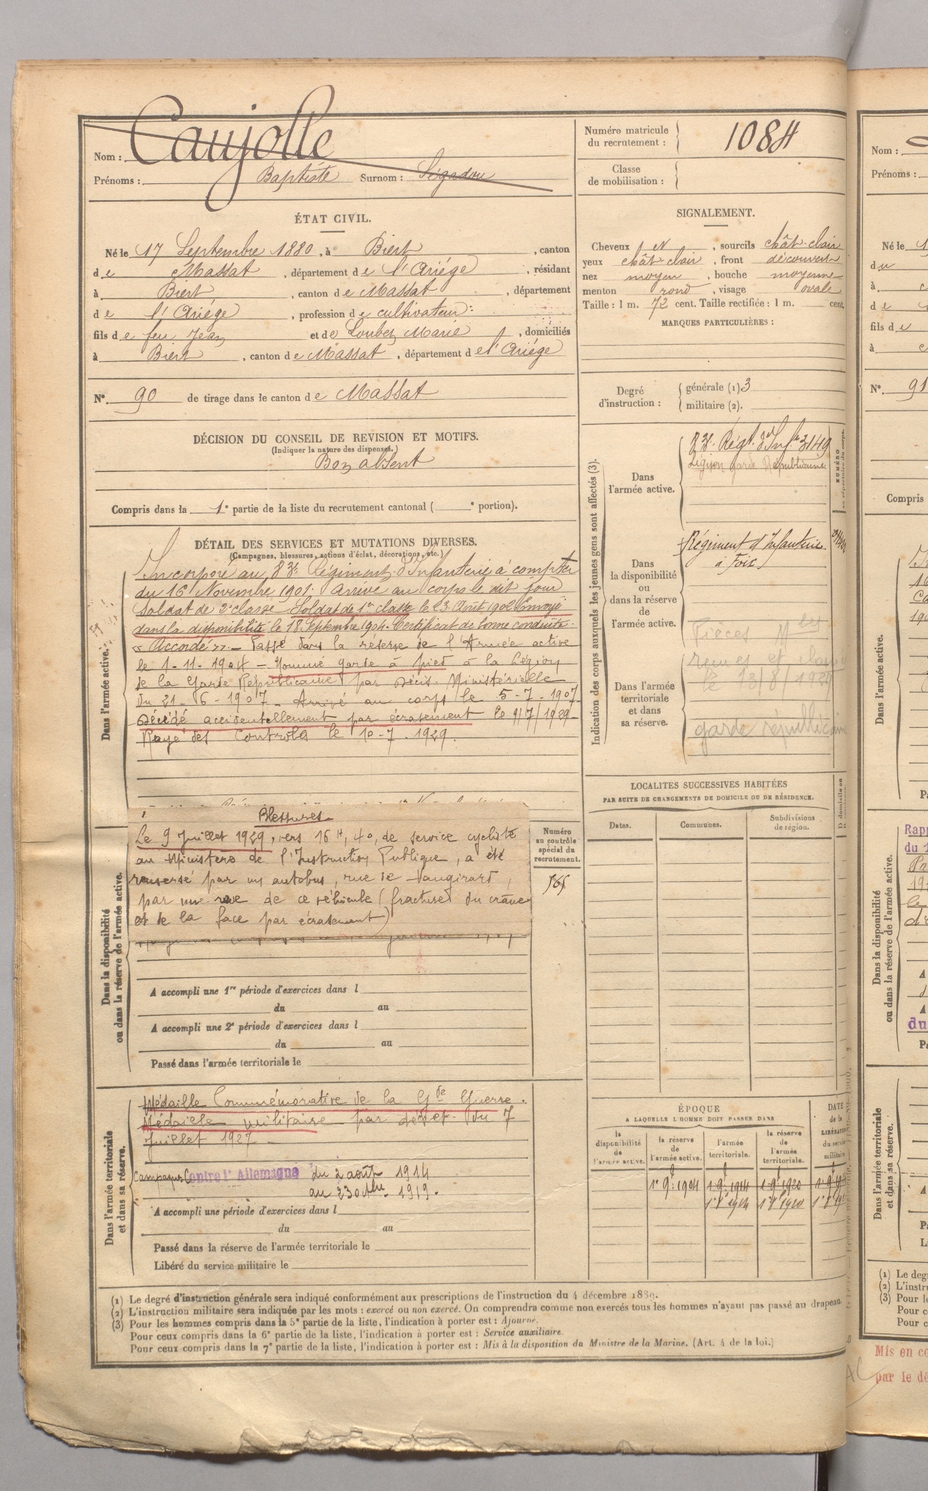 Nom : Caujolle
Prénoms : Baptiste Surnom : Ségadou
Numéro matricule du recrutement : 1084
Classe de mobilisation :
ÉTAT CIVIL.
Né le 17 Septembre 1880, à Biert, canton
de Massat, département de l'Ariége, résidant
à Biert, canton de Massat, département
de l'Ariége, profession de cultivateur
fils de feu Jean et de Loubet Marie, domiciliés
à Biert, canton de Massat, département de l'Ariége
N° 90 de tirage dans le canton de Massat
SIGNALEMENT.
Cheveux N, sourcils chât-clair
yeux chât clair, front découvert
nez moyen, bouche moyenne
menton rond, visage ovale
Taille : 1 m. 72 cent. Taille rectifiée : 1 m. cent.
MARQUES PARTICULIÈRES :
Degré d'instruction : générale (1) 3
militaire (2).
DÉCISION DU CONSEIL DE REVISION ET MOTIFS.
(Indiquer la nature des dispenses.)
Bon absent
Compris dans la 1e partie de la liste du recrutement cantonal ( e portion).
DÉTAIL DES SERVICES ET MUTATIONS DIVERSES.
(Campagnes, blessures, actions d'éclat, décorations, etc.)
Dans l'armée active.
Incorporé au 83e Régiment d'Infanterie à compter
du 16 Novembre 1901. Arrivé au corps le dit jour
Soldat de 2e classe. Soldat de 1re classe le 23 Août 1902. Envoyé
dans la disponibilité le 18 Septembre 1904. Certificat de bonne conduite
« Accordé ». Passé dans la réserve de l'Armée active
le 1-11-1904 - Nommé garde à pied à la Légion
de la Garde Républicaine par décis. Ministérielle
du 21-6-1907 - Arrivé au corps le 5-7-1907
Décédé accidentellement par écrasement le 9/7/1929
Rayé des Contrôles le 10-7-1929.
Indication des corps auxquels les jeunes gens sont affectés (3).
Dans l'armée active.
83e Régt d'Infie 3149
Légion garde Républicaine
Dans la disponibilité ou dans la réserve de l'armée active.
Régiment d'Infanterie
à Foix
Dans l'armée territoriale et dans sa réserve.
Pièces
garde républicaine
Dans la disponibilité ou dans la réserve de l'armée active.
Blessures
Le 9 Juillet 1929, vers 16h,40, de service cycliste
au Ministère de l'Instruction Publique, a été
renversé par un autobus, rue de Vaugirard,
par une roue de ce véhicule (fracture du crâne
et de la face par écrasement)
Numéro au contrôle spécial du recrutement.
A accompli une 1re période d'exercices dans l
du au
A accompli une 2e période d'exercices dans l
du au
Passé dans l'armée territoriale le
LOCALITES SUCCESSIVES HABITÉES
PAR SUITE DE CHANGEMENTS DE DOMICILE OU DE RÉSIDENCE.
Dates. Communes. Subdivisions de région.
Dans l'armée territoriale et dans sa réserve.
Médaille Commémorative de la Gde Guerre.
Médaille militaire par décret du 7
Juillet 1927
Campagnes Contre l'Allemagne du 2 août 1914
au 23 octbre 1919.
A accompli une période d'exercices dans l
du au
Passé dans la réserve de l'armée territoriale le
Libéré du service militaire le
ÉPOQUE
A LAQUELLE L'HOMME DOIT PASSER DANS
la disponibilité de l'armée active.
la réserve de l'armée active.
l'armée territoriale.
la réserve de l'armée territoriale.
DATE de la LIBÉRATION du service militaire
1er 9bre 1904 1er 9bre 1914 1er 9bre 1920
(1) Le degré d'instruction générale sera indiqué conformément aux prescriptions de l'instruction du 4 décembre 1889.
(2) L'instruction militaire sera indiquée par les mots : exercé ou non exercé. On comprendra comme non exercés tous les hommes n'ayant pas passé au drapeau.
(3) Pour les hommes compris dans la 5e partie de la liste, l'indication à porter est : Ajourné.
Pour ceux compris dans la 6e partie de la liste, l'indication à porter est : Service auxiliaire.
Pour ceux compris dans la 7e partie de la liste, l'indication à porter est : Mis à la disposition du Ministre de la Marine. (Art. 4 de la loi.)
Nom :
Prénoms :
Né le
fils d
N° 91
Compris
Dans l'armée active.
Mis en
par le